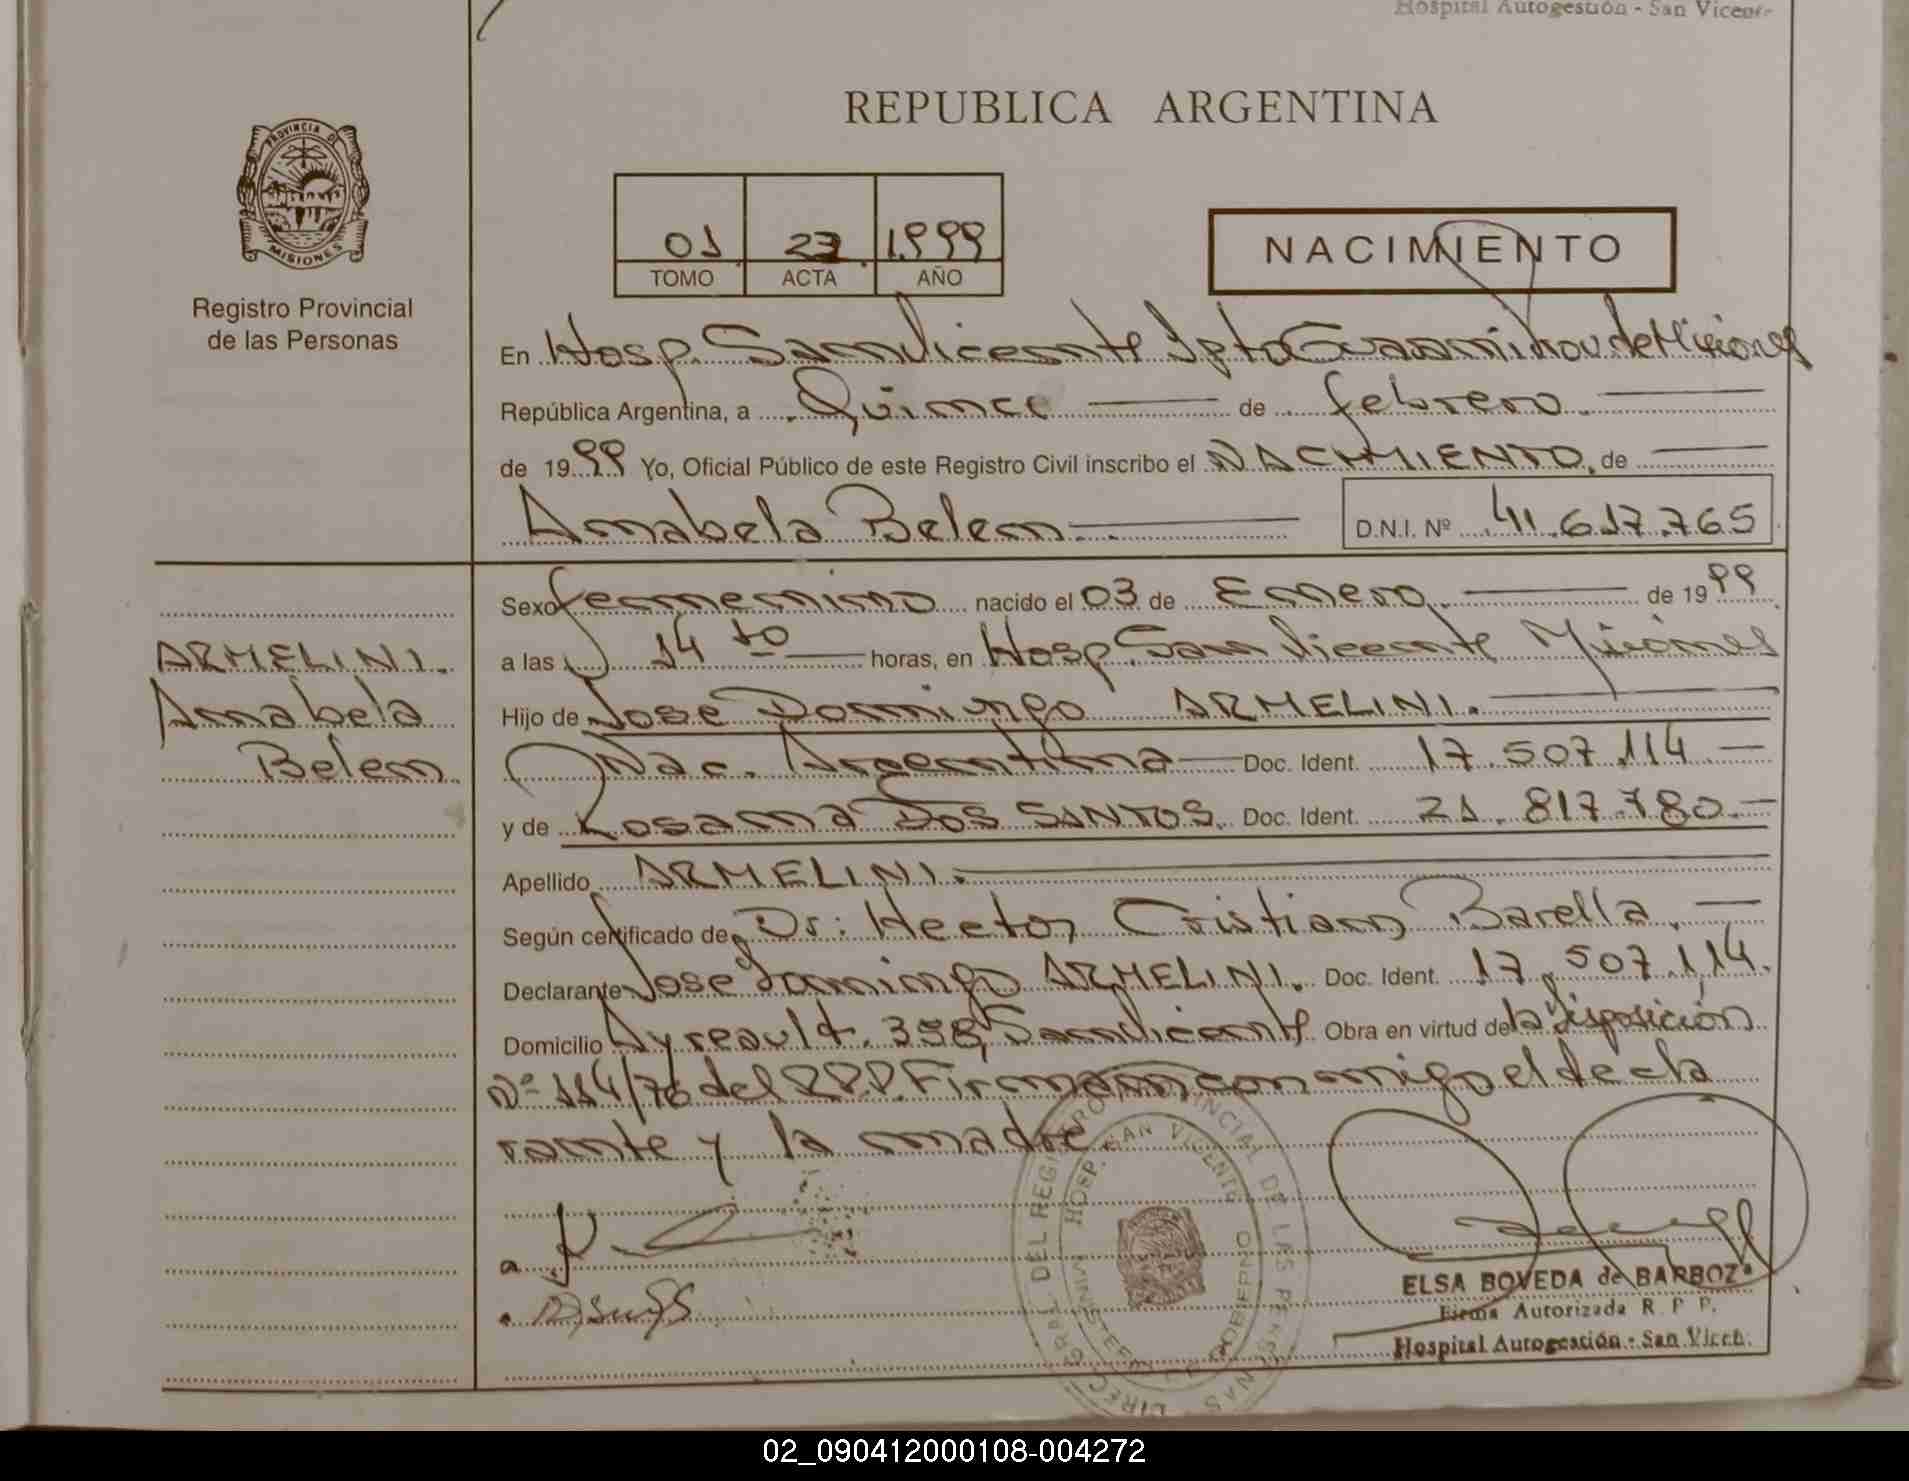 Hospital Autogestión - San Vicente
REPUBLICA ARGENTINA
PROVINCIA DE
MISIONES
Registro Provincial
de las Personas
01 27 1.999
TOMO ACTA AÑO
NACIMIENTO
En Hosp. San Vicente Dpto Guaraní Prov. de Misiones
República Argentina, a Quince de febrero.
de 1999 Yo, Oficial Público de este Registro Civil inscribo el NACIMIENTO, de
Annabela Belem
D.N.I. Nº 41.617.765
Sexo femenino nacido el 03 de Enero de 1999
a las 14 to horas, en Hosp San Vicente Misiones
ARMELINI.
Annabela
Belem
Hijo de Jose Domingo ARMELINI.
Nac. Argentina Doc. Ident. 17.507.114
y de Rosana DOS SANTOS. Doc. Ident. 21.817.780.
Apellido ARMELINI.
Según certificado de Dr: Hector Cristian Barella.
Declarante Jose Domingo ARMELINI. Doc. Ident. 17.507.114.
Domicilio Ayreault. 358, San Vicente Obra en virtud de la Disposición
Nº 114/76 del R.P.P. Firman conmigo el decla
rante y la madre.
DIREC GRAL. DEL REGISTRO PROVINCIAL DE LAS PERSONAS
HOSP. SAN VICENTE
MINISTERIO GOBIERNO
ELSA BOVEDA de BARBOZA
Firma Autorizada R. P. P.
Hospital Autogestión - San Vicen.
02_090412000108-004272